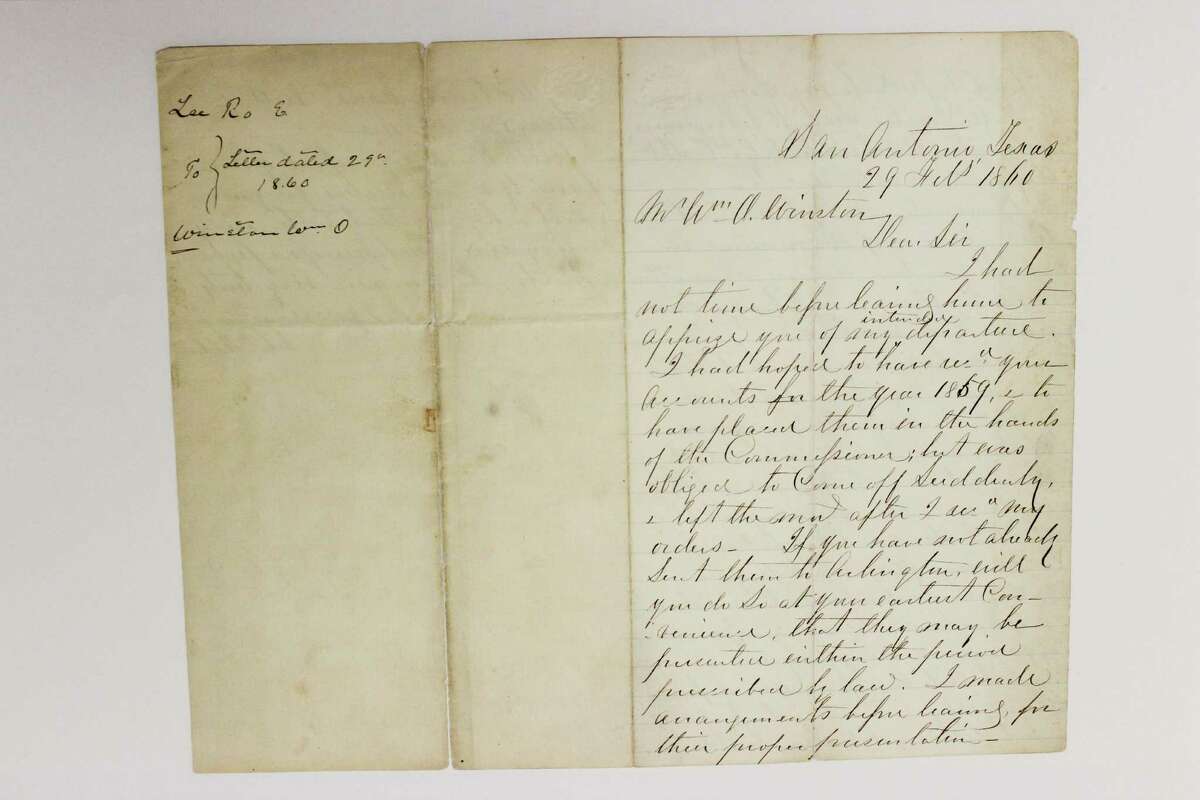 Lee Ro E
To } Letter dated 29th
1860
Winston Wm O
San Antonio, Texas
29 Feby 1860
Mr Wm O. Winston
Dear Sir
I had
not time before leaving home to
apprize you of my intended departure.
I had hoped to have recd your
accounts for the year 1859, & to
have placed them in the hands
of the Commissioner; but was
obliged to Come off Suddenly,
& left the after I recd my
orders - If you have not already
Sent them to Arlington, will
you do So at your earliest Con-
-venience, that they may be
presented within the period
prescribed by law. I made
arrangements before leaving, for
their proper presentation -